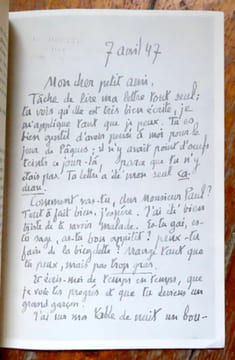 7 avril 47
Mon cher petit ami,
Tâche de lire ma lettre tout seul;
tu vois qu'elle est très bien écrite, je
m'applique tant que je peux. Tu es
bien gentil d'avoir pensé à moi pour le
jour de Pâques; il n'y avait point d'œufs
teints ce jour-là, parce que tu n'y
étais pas. Ta lettre a été mon seul ca-
deau.
Comment vas-tu, dur Monsieur Paul?
Tout à fait bien, j'espère. J'ai été bien
triste de te savoir malade. Es-tu gai, es-
tu sage, as-tu bon appétit? peux-tu
faire de la bicyclette? Mange tant que
tu peux, mais pas trop près.
Et écris-moi de temps en temps, que
je voie tes progrès et que tu deviens un
grand garçon!
J'ai sur ma table de nuit un bou-